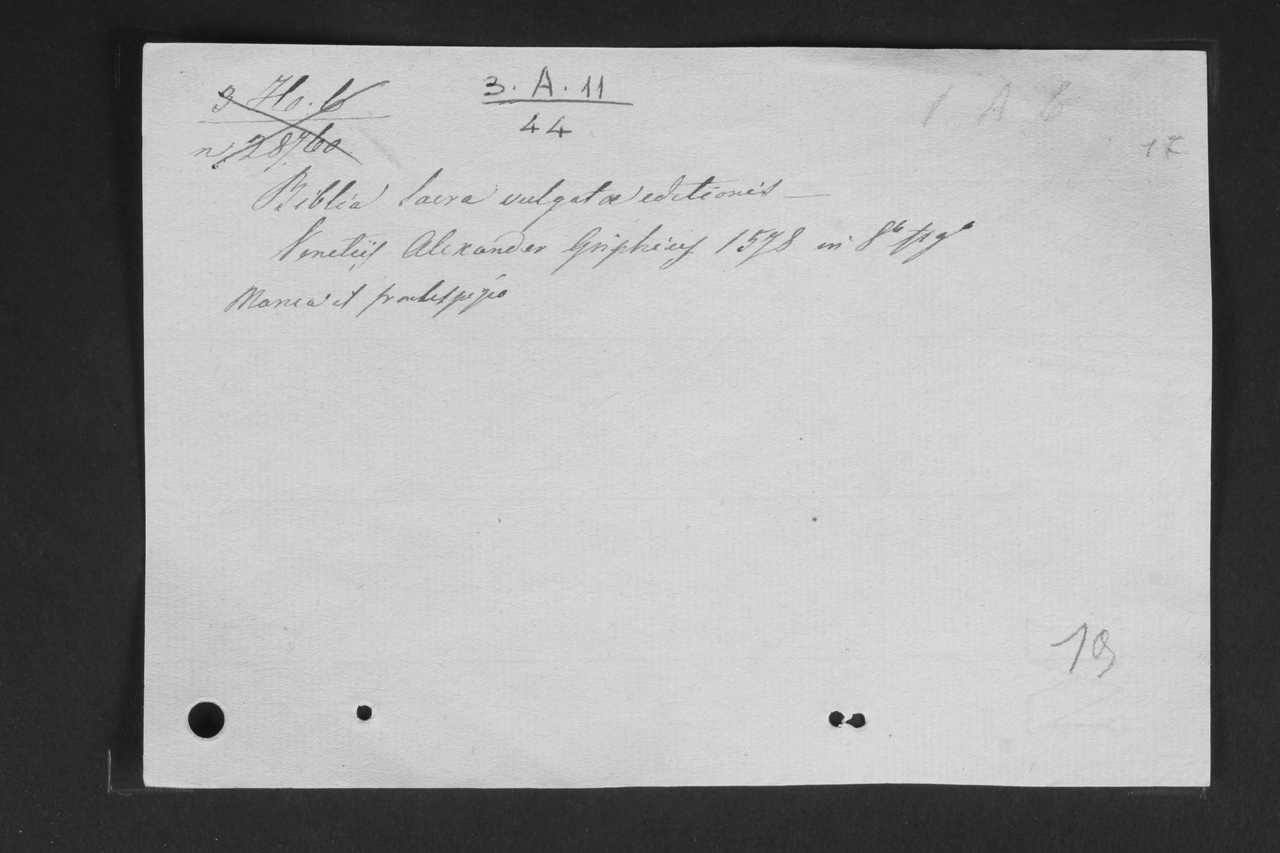 3 Ho. 6
n. 28760
3. A. 11
44
1 A 6
17
Biblia Sacra vulgatæ editionis —
Venetiis Alexander Griphius 1578 in 8°
Manca il frontespizio
19